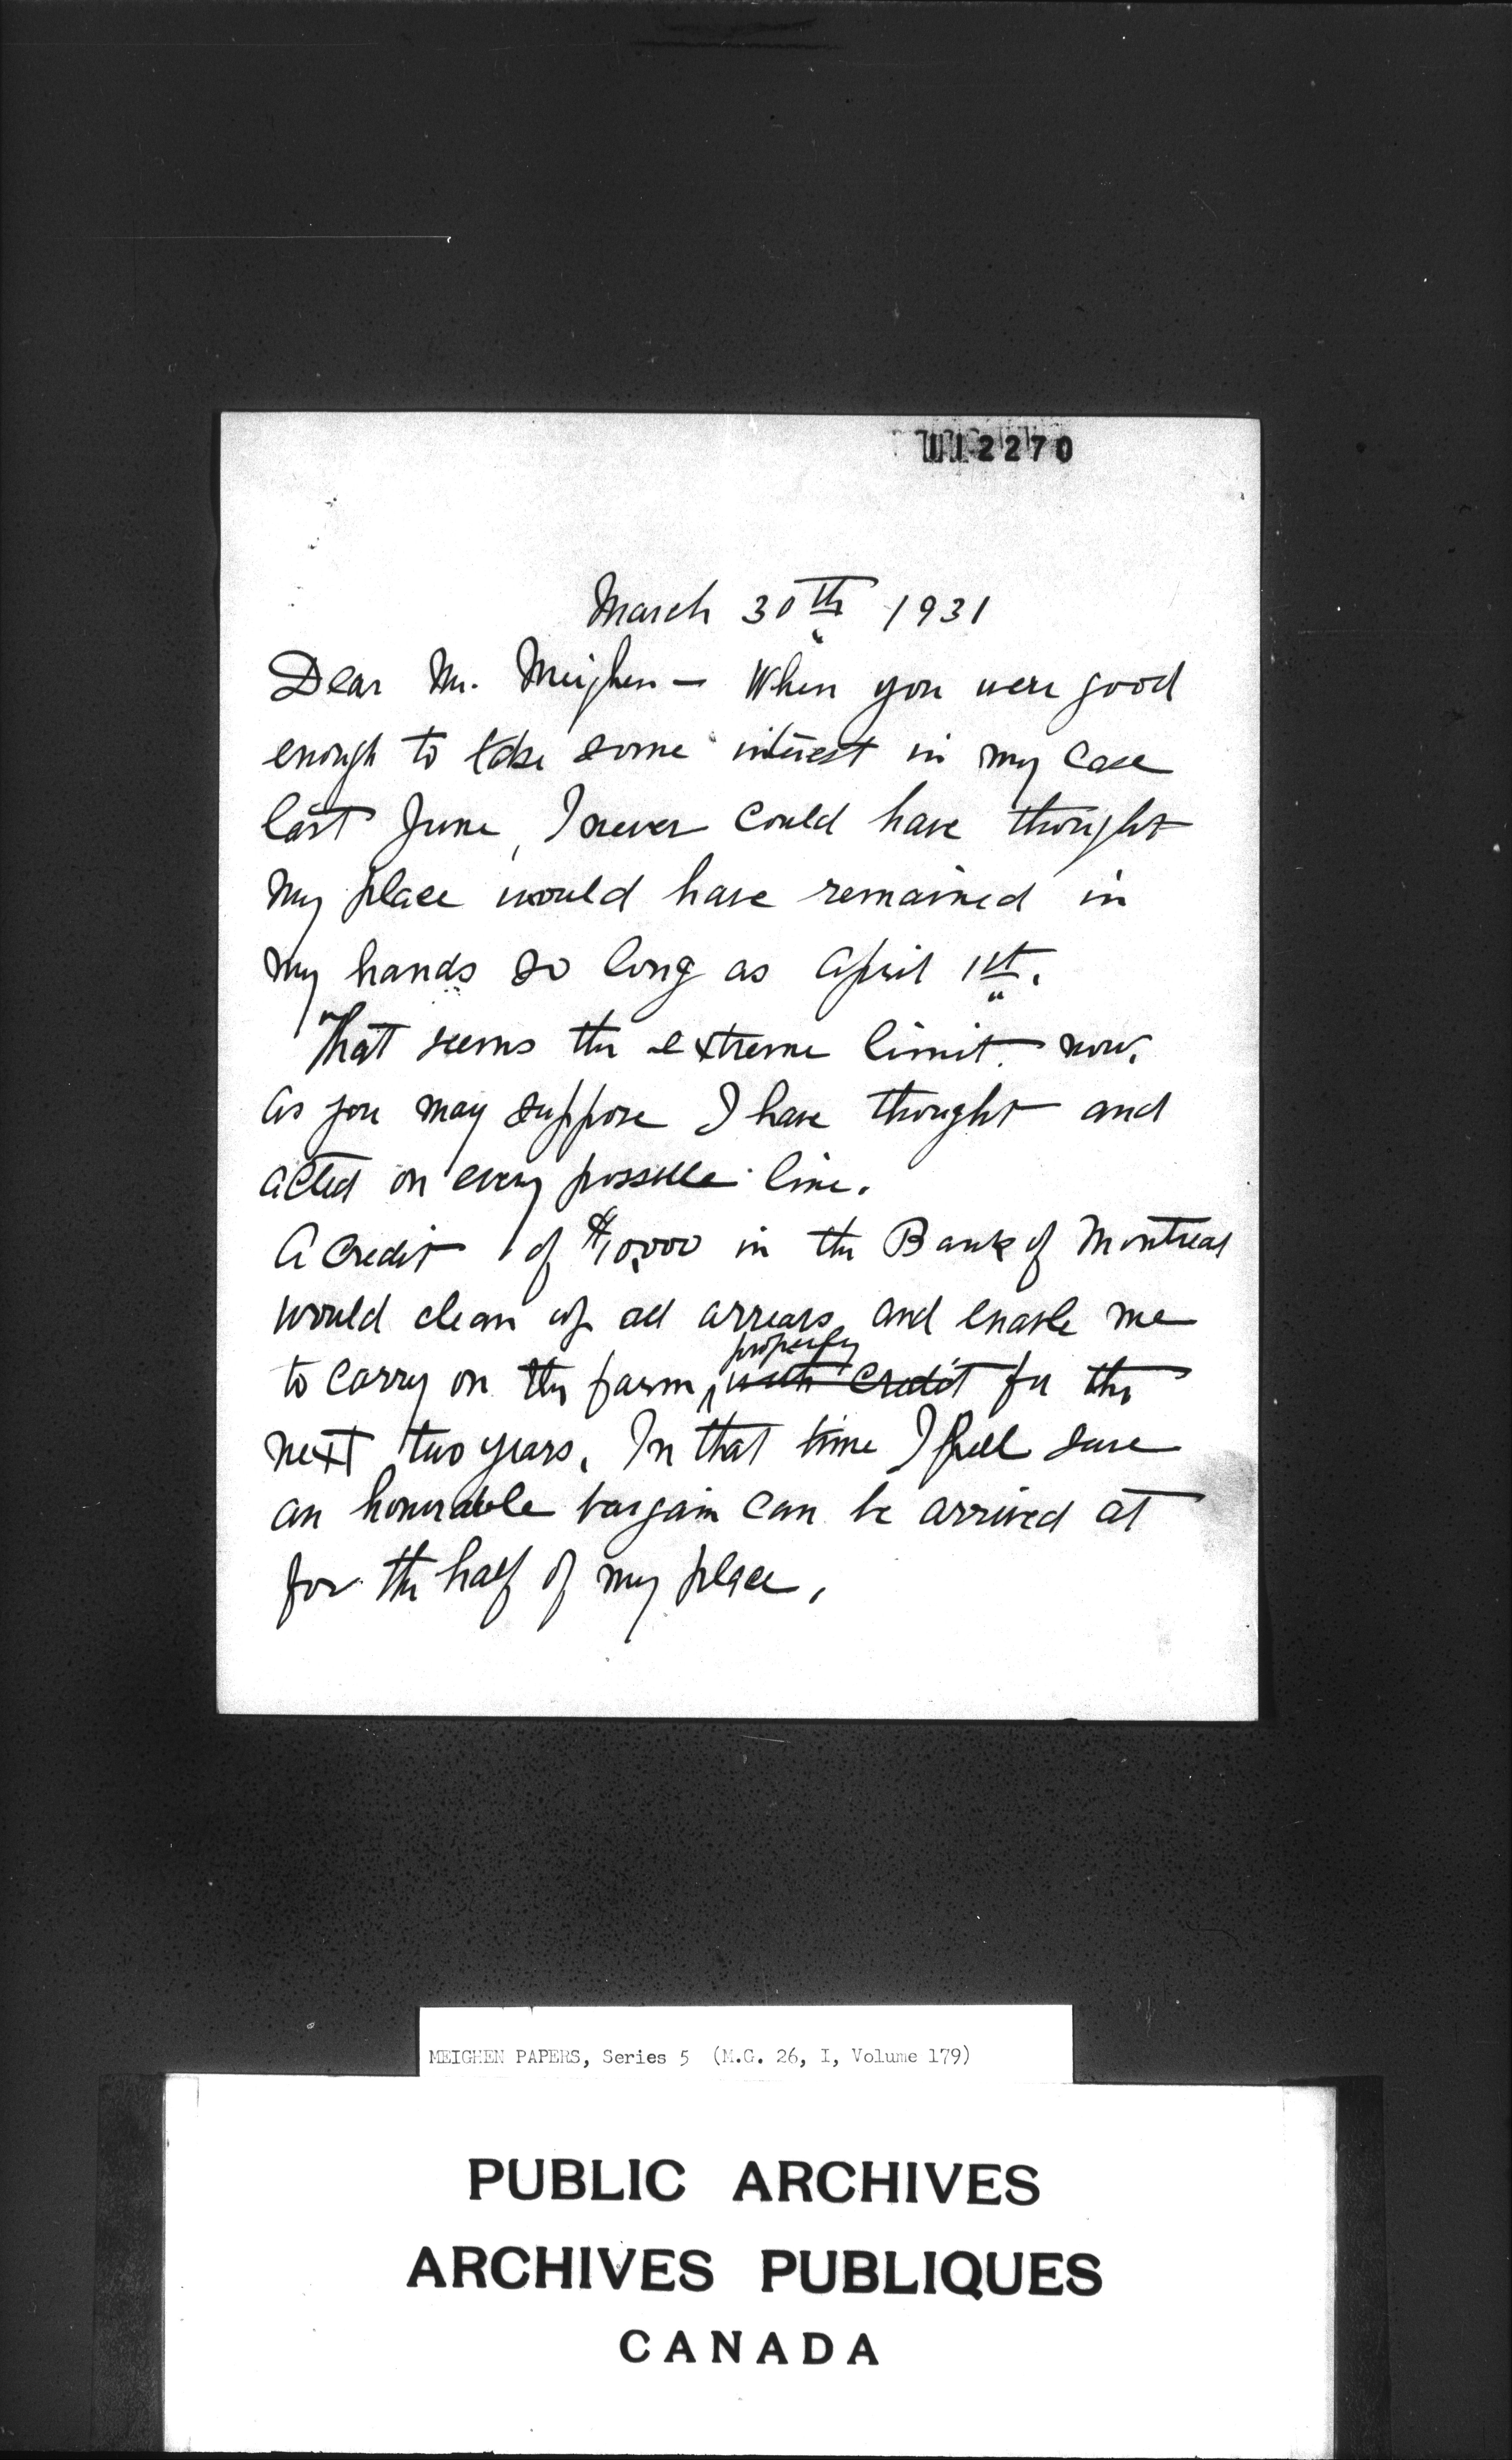 112270
March 30th 1931
Dear Mr. Meighen — When you were good
enough to take some interest in my case
last June, I never could have thought
my place would have remained in
my hands so long as April 1st.
That seems the extreme limit now.
As you may suppose I have thought and
acted on every possible line.
A credit of $10,000 in the Bank of Montreal
would clean up all arrears and enable me
properly
to carry on the farm, with credit for the
next two years. In that time I feel sure
an honorable bargain can be arrived at
for the half of my place.
MEIGHEN PAPERS, Series 5 (M.G. 26, I, Volume 179)
PUBLIC ARCHIVES
ARCHIVES PUBLIQUES
CANADA